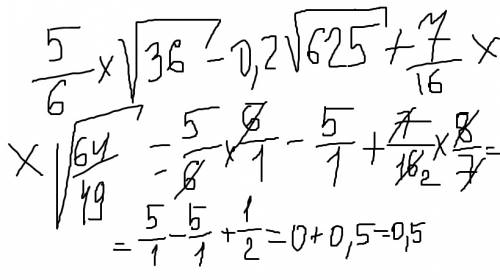 5/6 × √36 − 0,2√625 + 7/16 ×
× √(64/49) = 5/6 × 6/1 − 5/1 + 7/16 2 × 8/7 =
= 5/1 − 5/1 + 1/2 = 0 + 0,5 = 0,5